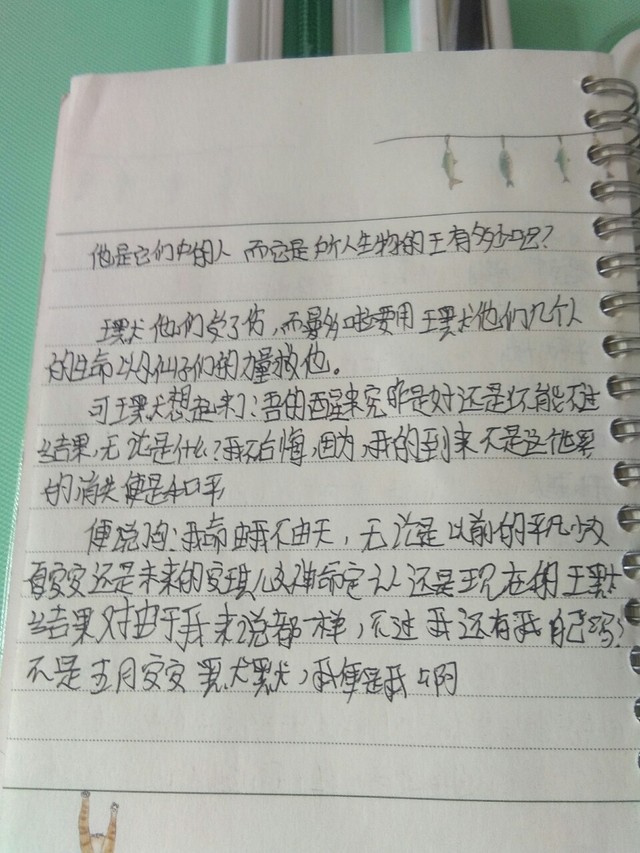 他是它们中的人 而它是所人生物的王有多少呢?
王默 他们受了伤,而要用 王默他们几个人
的生命 以及仙子们的力量救他。
可王默想起来了:吾的醒来究 是好还是坏 能不过
结果,无论是什么?我不后悔,因为,我的到来不是这世界
的消失便是和平
便说的:我命由我不由天,无论是以前的平凡少女
夏安安还是未来的安琪儿 命定之人还是现在的王默
结果对由于我来说都一样,不过 我还有我自己吗?
不是 五月安安 默默,我便是我 啊